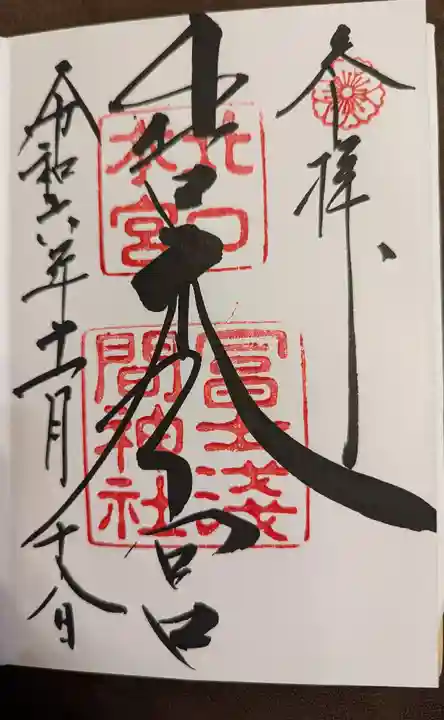 参拝
北口本宮
北口
本宮
冨士淺
間神社
令和六年十一月十八日